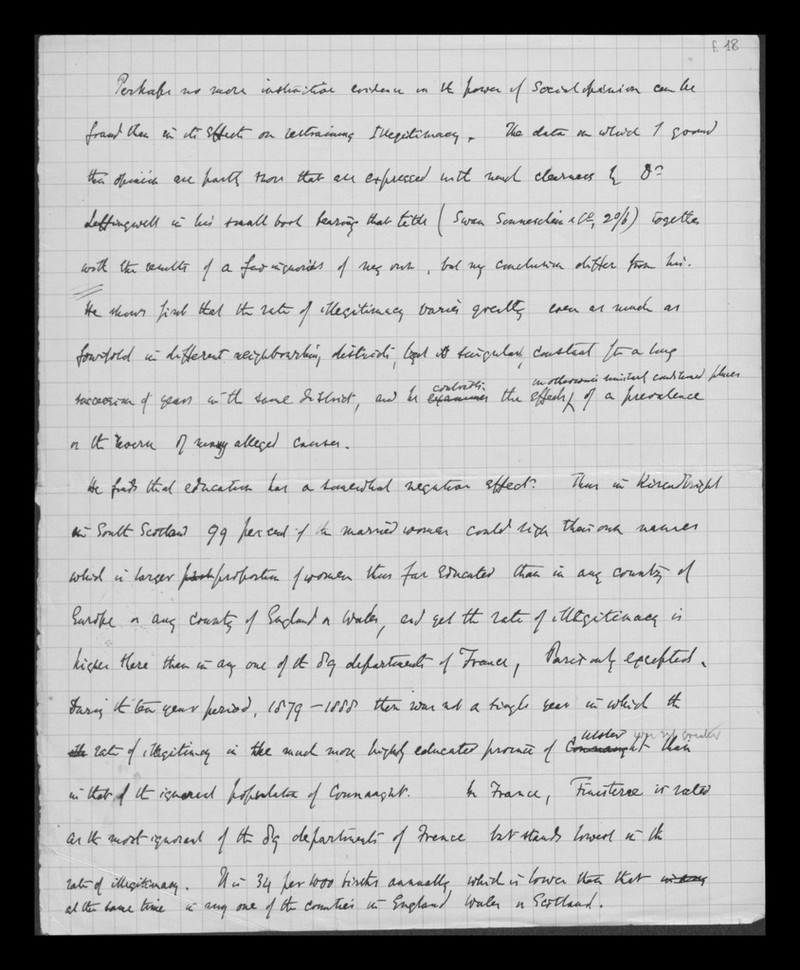 f. 18
Perhaps no more instructive evidence on the power of Social opinion can be
found than in its effects on restraining Illegitimacy. The data on which I ground
this opinion are partly those that are expressed with much clearness by Dr
Leffingwell in his small book bearing that title (Swan Sonnenschein & Co, 2/6) together
with the results of a few inquiries of my own, but my conclusions differ from his.
He shows first that the rate of illegitimacy varies greatly even as much as
fourfold in different neighbouring districts, but is singularly constant for a long
contrasts in otherwise similarly conditioned places
succession of years in the same district, and he examines the effects of a prevalence
or the reverse of many alleged causes.
He finds that education has a somewhat negative effect. Thus in Kircudbright
in South Scotland 99 per cent of the married women could sign their own names
which is larger proportion of women thus far educated than in any country of
Europe or any county of England or Wales, and yet the rate of illegitimacy is
higher there than in any one of the 89 departments of France, Paris only excepted.
During the ten year period, 1879–1888 there was not a single year in which the
Ulster was not greater
the rate of illegitimacy in the much more highly educated province of Connaught than
in that of the ignorant population of Connaught. In France, Finisterre is rated
as the most ignorant of the 89 departments of France but stands lowest in the
rate of illegitimacy. It is 34 per 1000 births annually, which is lower than that in any
at the same time in any one of the counties in England Wales or Scotland.